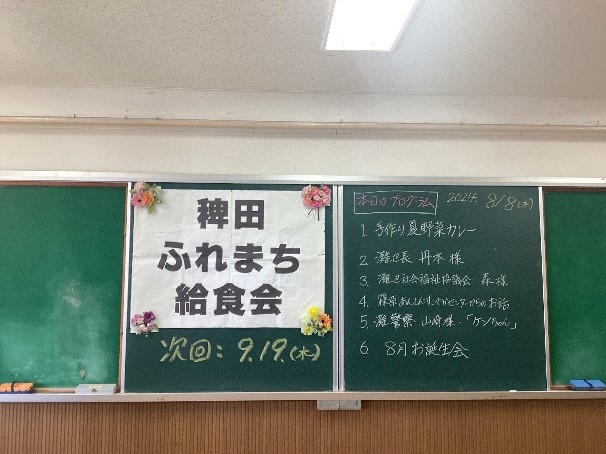 稗田
ふれまち
給食会
次回：9.19.(木)
本日のプログラム 2024. 8/8(木)
1. 手作り夏野菜カレー
2. 灘区長 丹本様
3. 灘区社会福祉協議会 森様
4. 篠原あんしんすこやかセンターからのお話
5. 灘警察・山崎様・「ケンちゃん」
6. 8月お誕生会